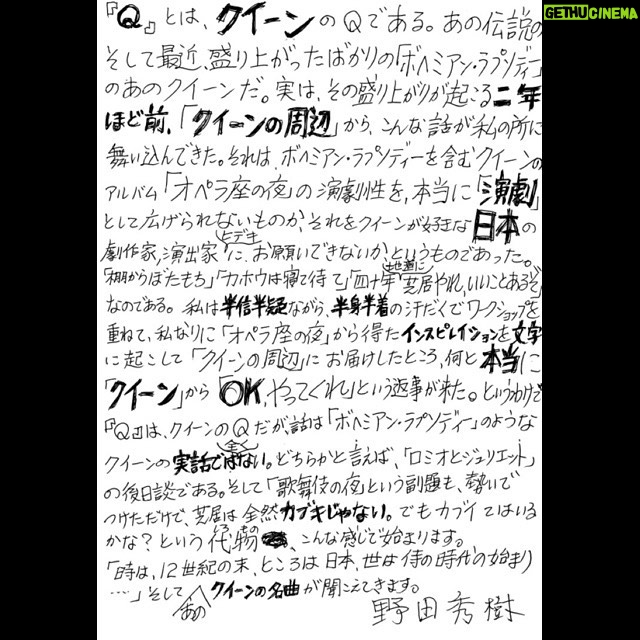 GETHUCINEMA
『Q』とは、クイーンのQである。あの伝説の
そして最近、盛り上がったばかりの「ボヘミアン・ラプソディー」
のあのクイーンだ。実は、その盛り上がりが起こる二年
ほど前、「クイーンの周辺」から、こんな話が私の所に
舞い込んできた。それは、ボヘミアン・ラプソディーを含むクイーンの
アルバム「オペラ座の夜」の演劇性を、本当に「演劇」
として広げられないものか、それをクイーンが好きな日本の
劇作家、演出家ヒデキに、お願いできないか、というものであった。
「棚からぼたもち」「カホウは寝て待て」「四十年地道に芝居やれ、いいことあるぞ」
なのである。私は半信半疑ながら、半身半着の汗だくでワークショップを
重ねて、私なりに「オペラ座の夜」から得たインスピレイションを文字
に起こして「クイーンの周辺」にお届けしたところ、何と本当に
「クイーン」から「OK、やってくれ」という返事が来た。というわけで
『Q』は、クイーンのQだが、話は「ボヘミアン・ラプソディー」のような
クイーンの実話では全くない。どちらかと言えば、「ロミオとジュリエット」
の後日談である。そして「歌舞伎の夜」という副題も、勢いで
つけただけで、芝居は全然カブキじゃない。でもカブイてはいる
かな？という代物しろもの、こんな感じで始まります。
「時は、12世紀の末、ところは日本、世は侍の時代の始まり
……」そしてあのクイーンの名曲が聞こえてきます。
野田秀樹